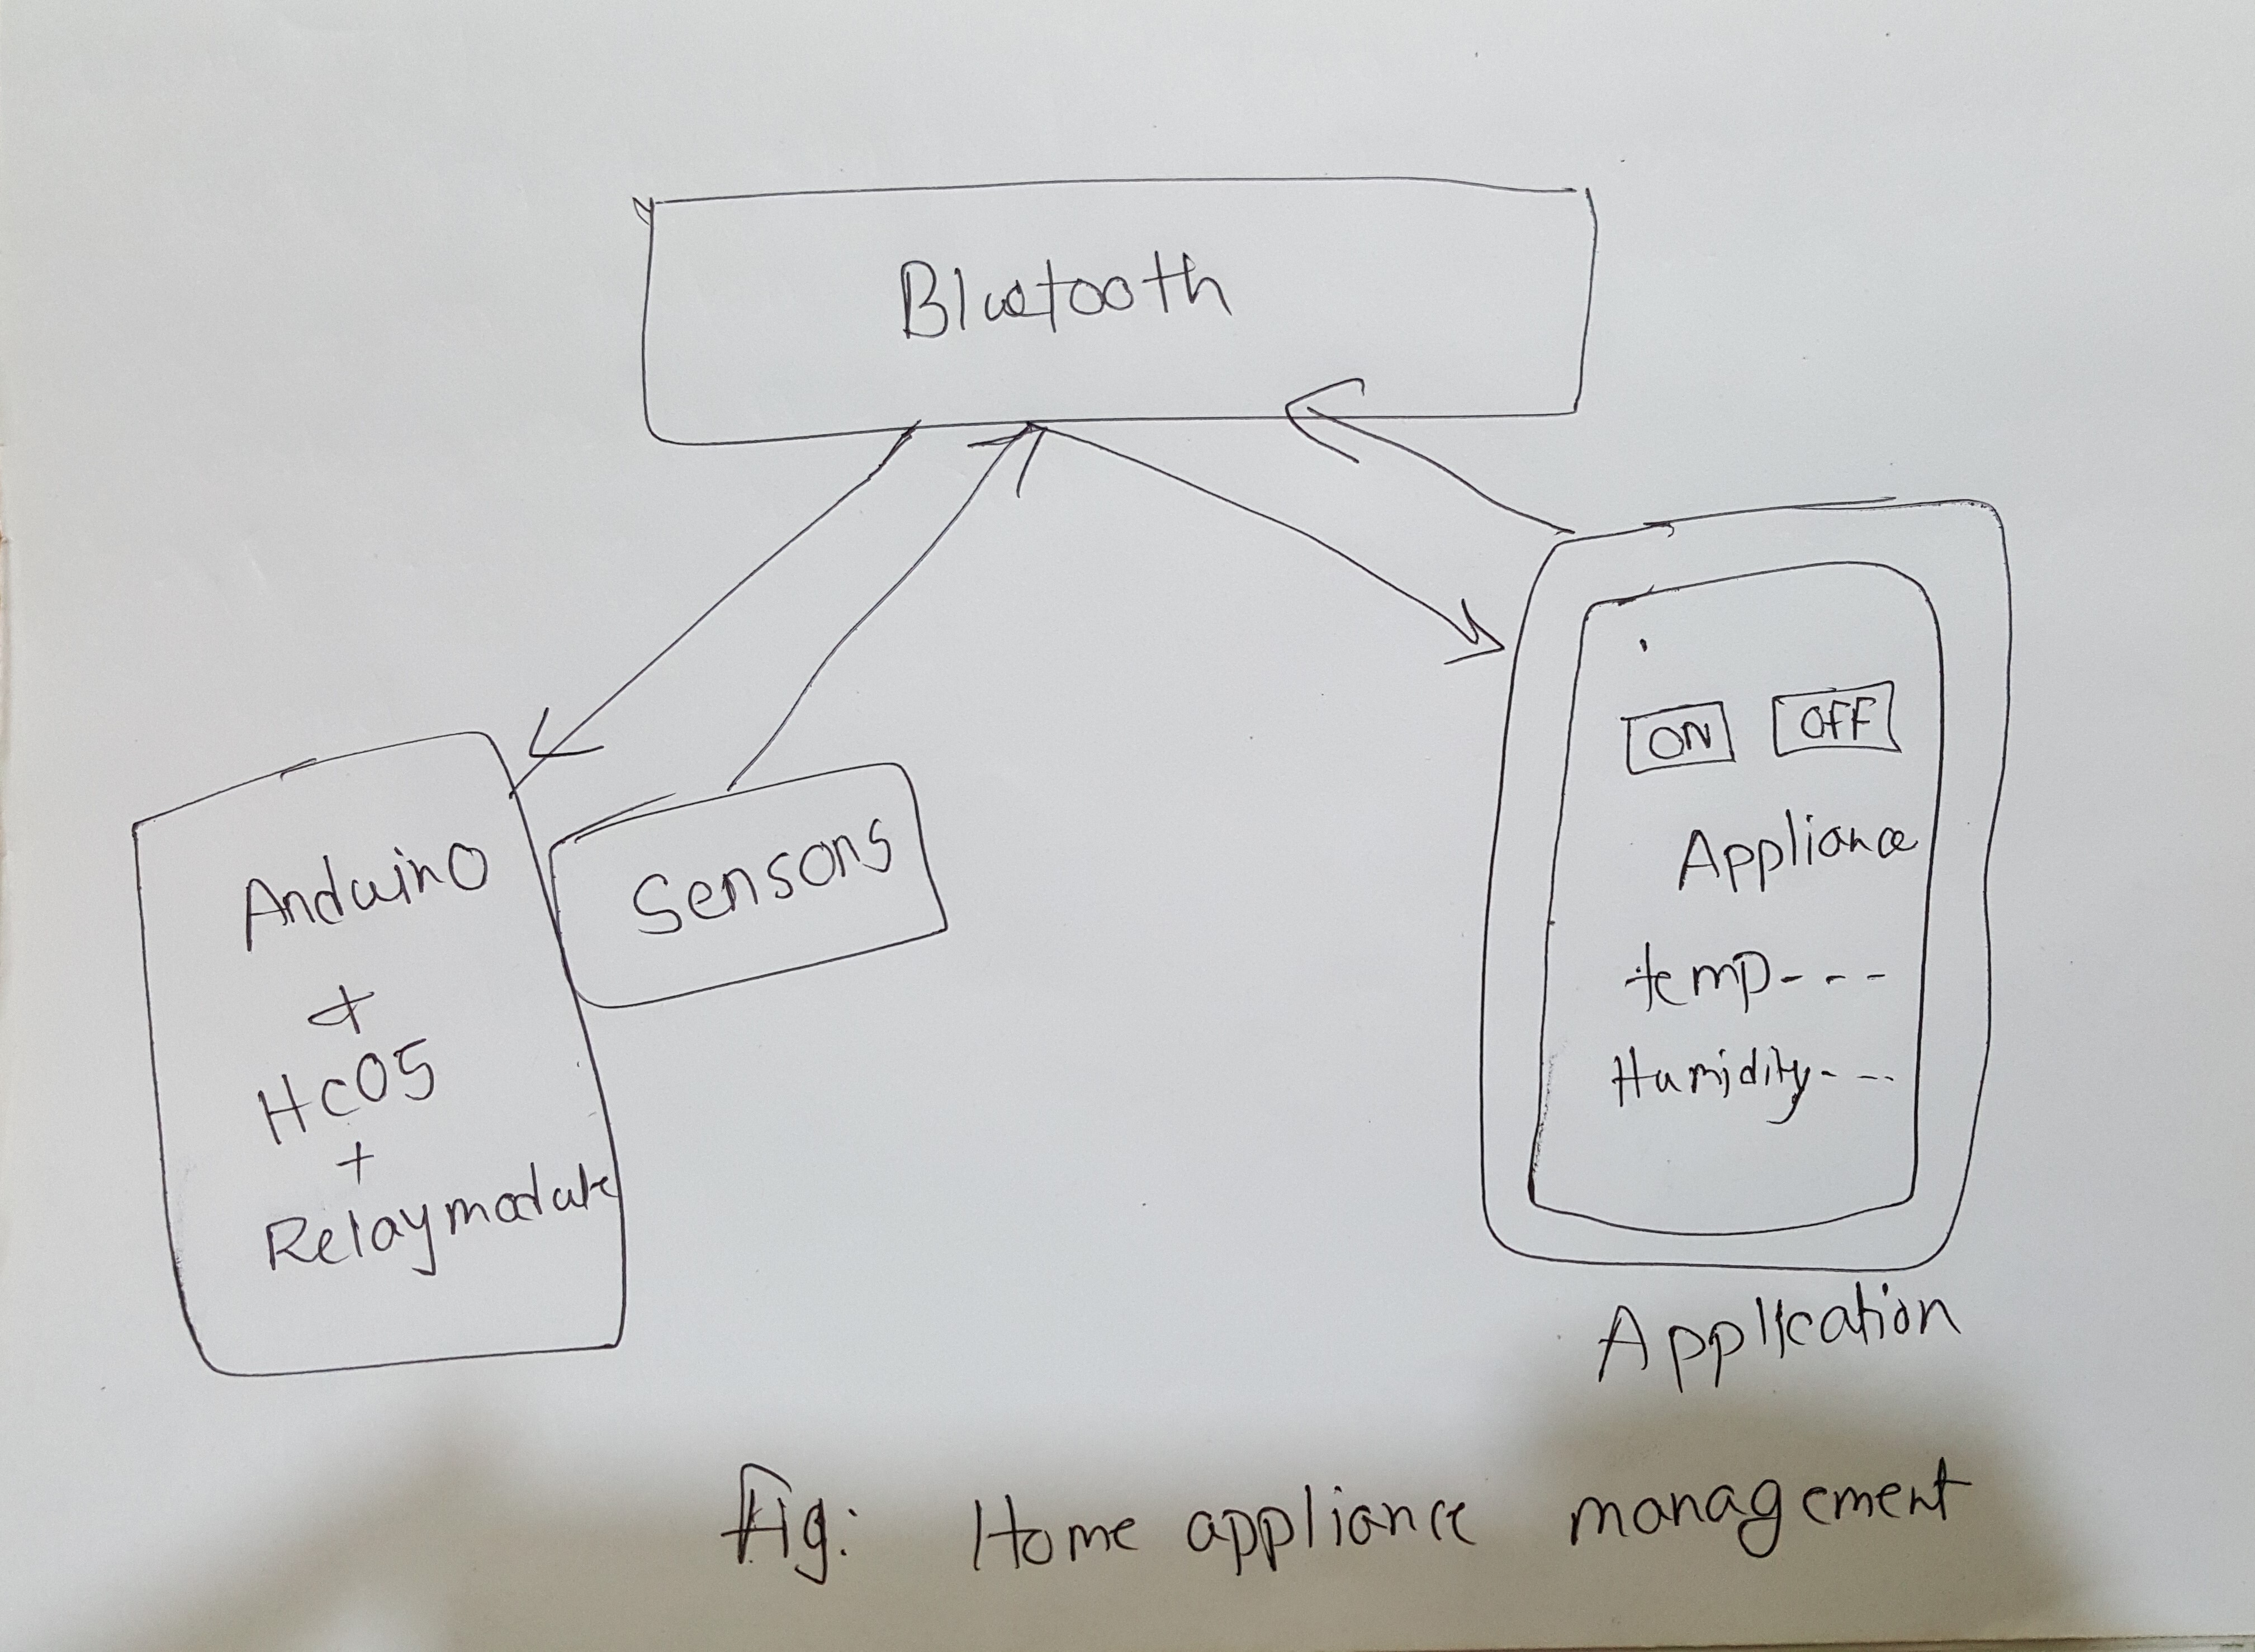 Bluetooth
Arduino
+
HC05
+
Relay module
Sensors
ON OFF
Appliance
temp---
Humidity---
Application
Fig: Home appliance management